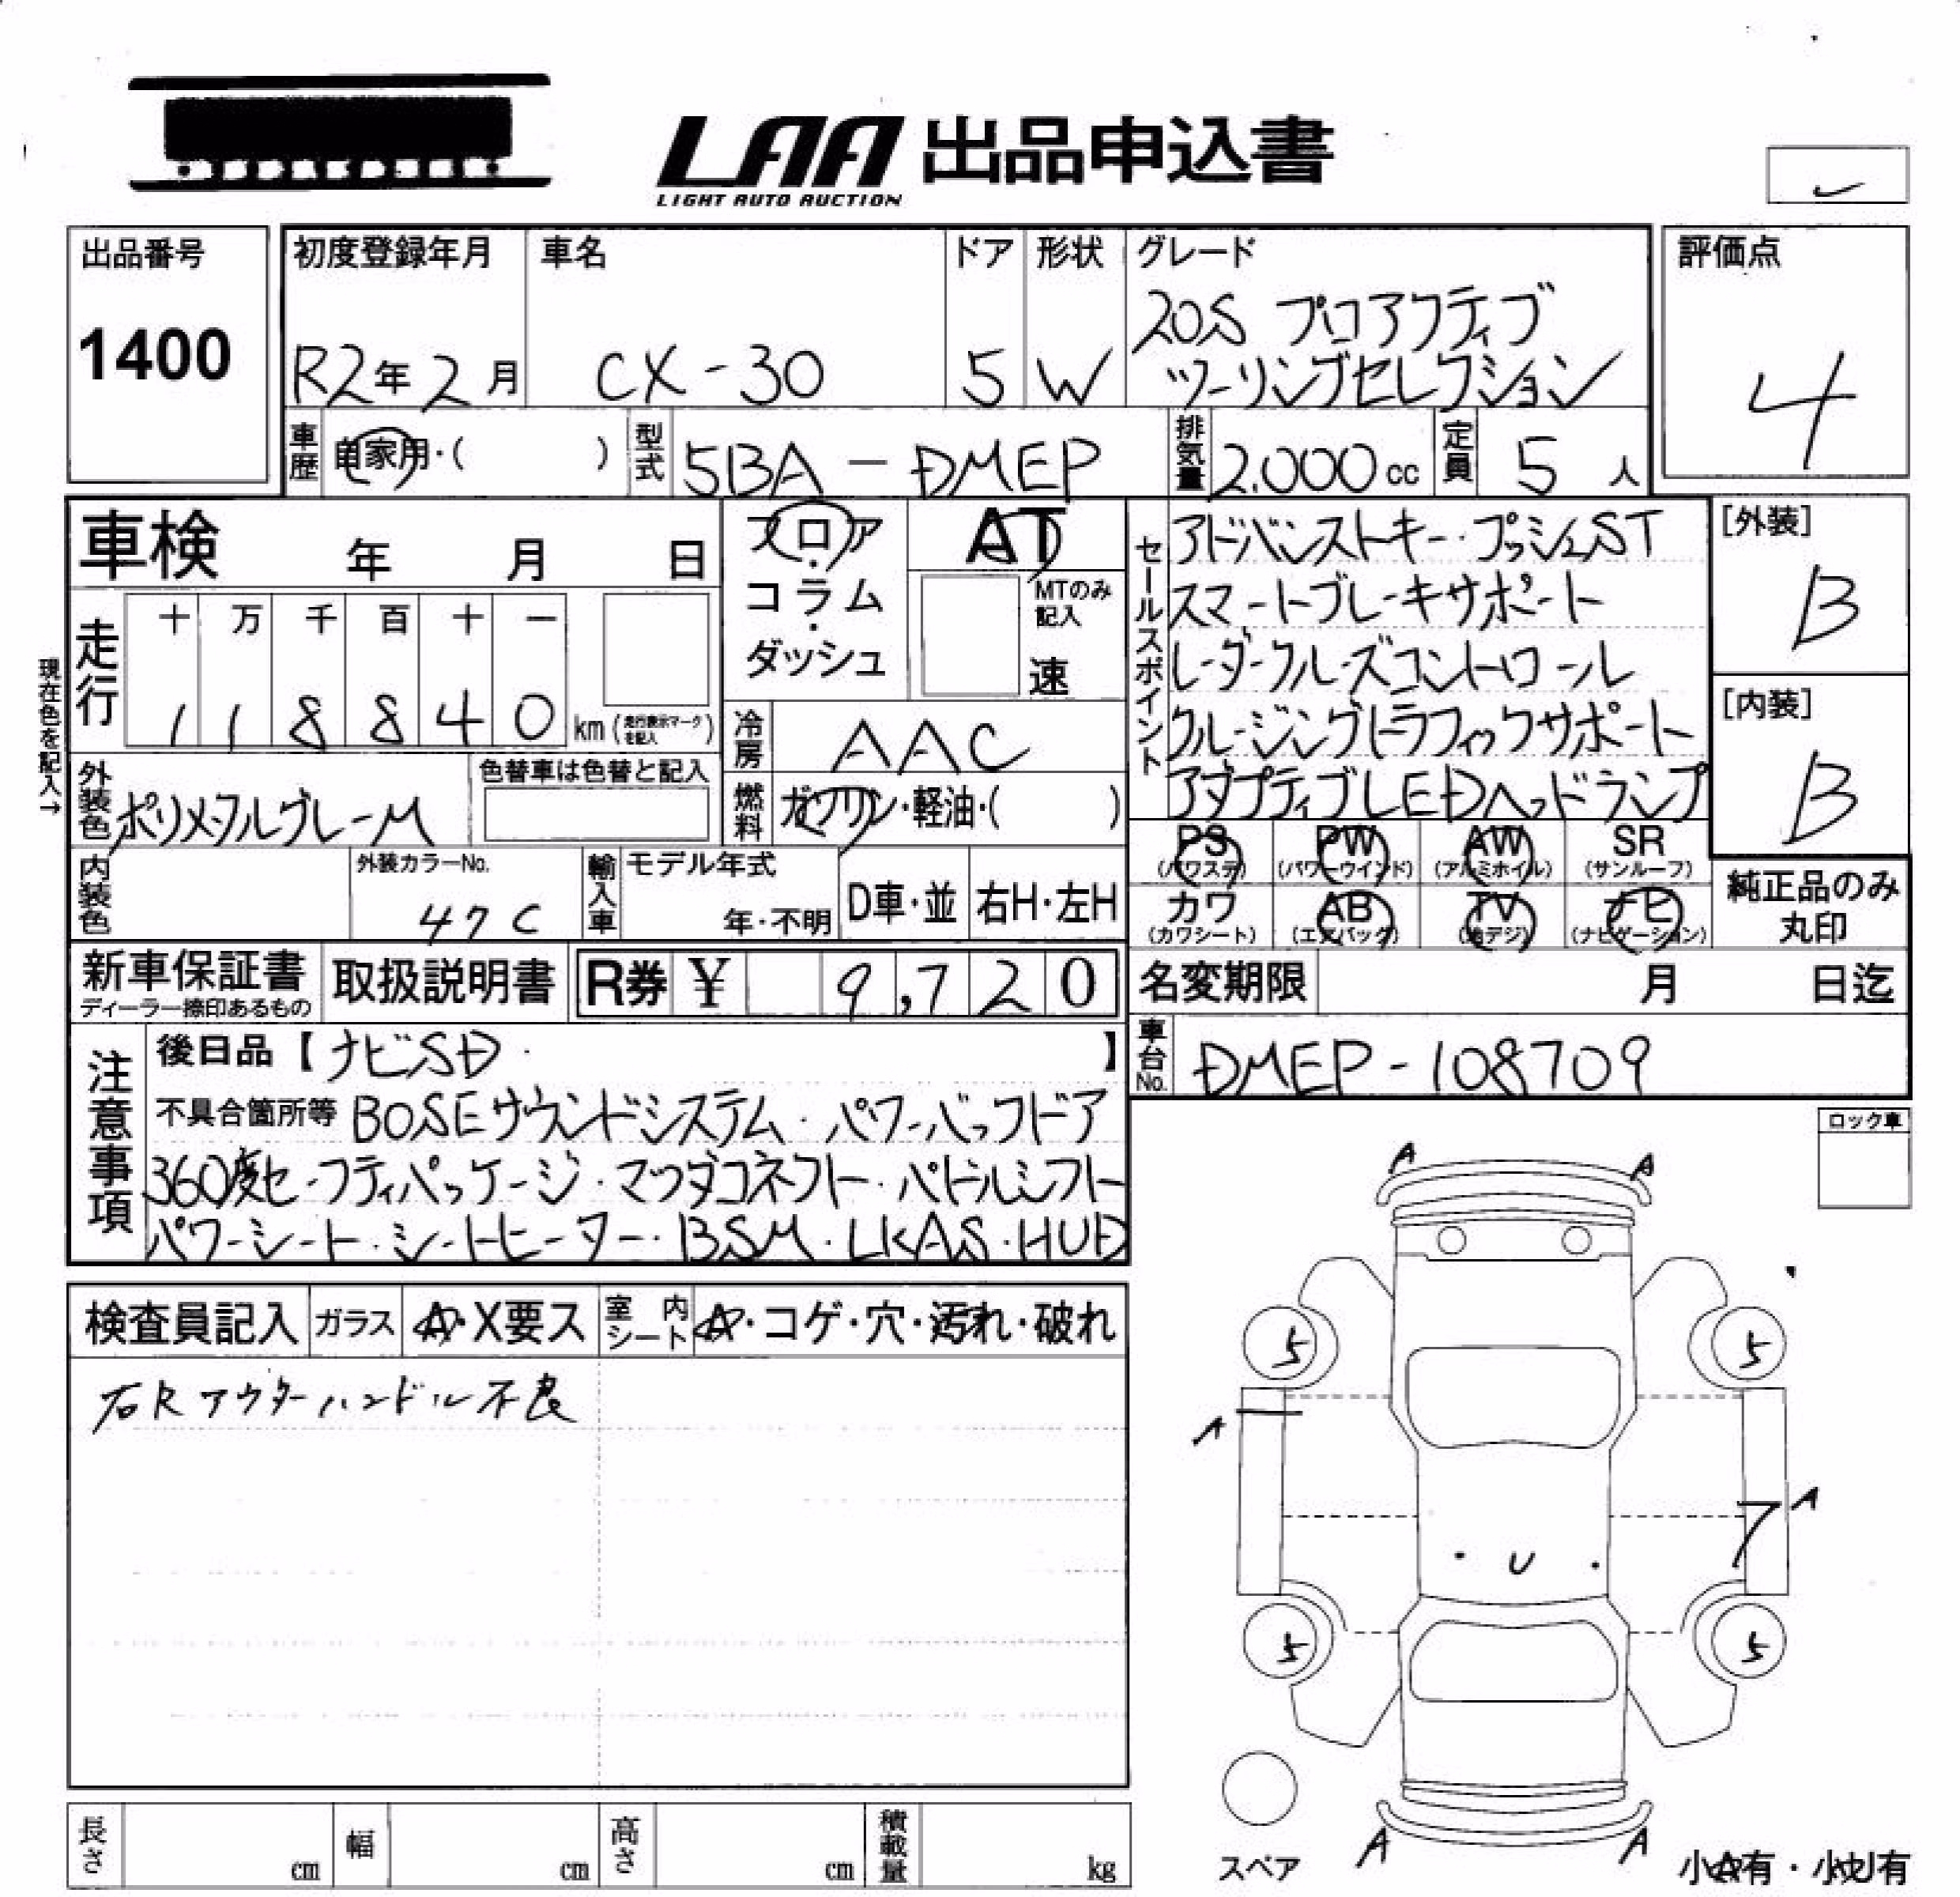 LAA 出品申込書
LIGHT AUTO AUCTION
出品番号
1400
初度登録年月
R2年2月
車名
CX-30
ドア
5
形状
W
グレード
20S プロアクティブ
ツーリングセレクション
評価点
4
車歴 自家用・( )
型式 5BA-DMEP
排気量 2.000cc
定員 5人
車検 年 月 日
フロア・コラム・ダッシュ
AT
MTのみ記入
速
現在色を記入→
走行
十 万 千 百 十 一
1 1 8 8 4 0 km (走行表示マークを記入)
冷房 AAC
燃料 ガソリン・軽油・( )
外装色 ポリメタルグレーM
色替車は色替と記入
内装色
外装カラーNo.
47C
輸入車 モデル年式
年・不明
D車・並
右H・左H
セールスポイント
アドバンストキー・プッシュST
スマートブレーキサポート
レーダークルーズコントロール
クルージングトラフィックサポート
アダプティブLEDヘッドランプ
[外装]
B
[内装]
B
PS (パワステ) PW (パワーウインド) AW (アルミホイル) SR (サンルーフ)
カワ (カワシート) AB (エアバック) TV (地デジ) ナビ (ナビゲーション)
純正品のみ
丸印
新車保証書
ディーラー捺印あるもの
取扱説明書
R券 ¥ 9,720
名変期限 月 日迄
車台No. DMEP-108709
注意事項
後日品【ナビSD・】
不具合箇所等 BOSEサウンドシステム・パワーバックドア
360度セーフティパッケージ・マツダコネクト・パドルシフト
パワーシート・シートヒーター・BSM・LKAS・HUD
検査員記入 ガラス A・X要ス 室内シート A・コゲ・穴・汚れ・破れ
右Rアウターハンドル不良
ロック車
A A
5 5
A
A
7
・ U ・
5 5
A A
スペア
小A有・小U有
長さ cm 幅 cm 高さ cm 積載量 kg